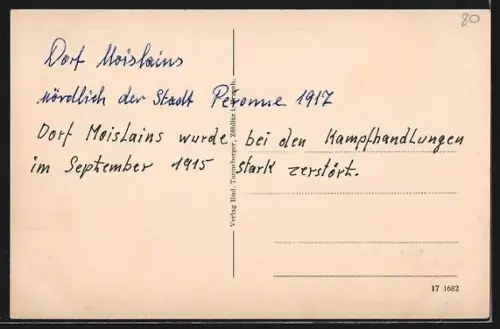 80
Dorf Moislains
nördlich der Stadt Peronne 1917
Dorf Moislains wurde bei den Kampfhandlungen
im September 1915 stark zerstört.
Verlag Rud. Zöblitz i. Erzgeb.
17 1682